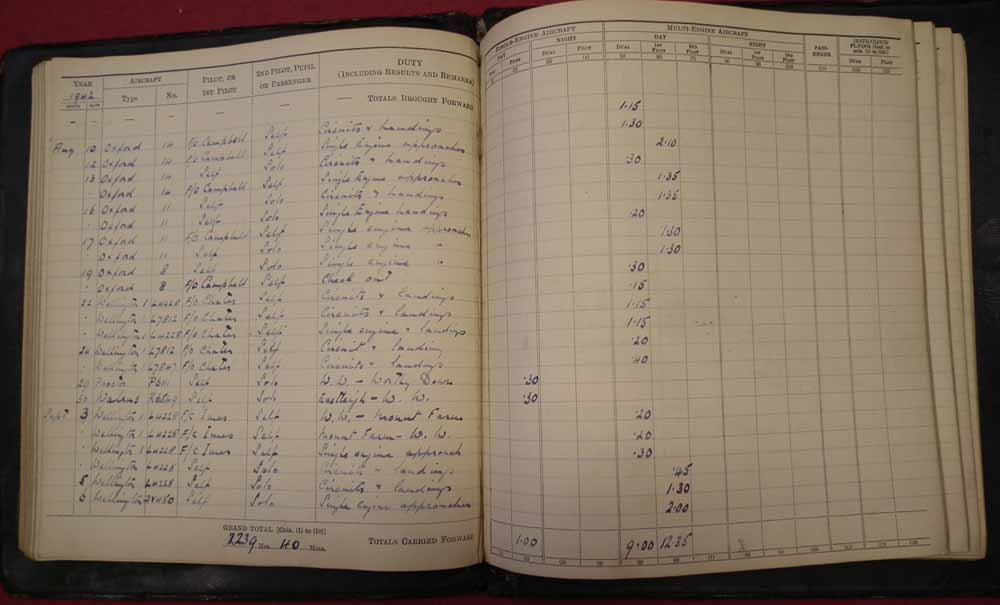 YEAR AIRCRAFT PILOT, OR 1ST PILOT 2ND PILOT, PUPIL OR PASSENGER DUTY (INCLUDING RESULTS AND REMARKS)
1942 MONTH DATE Type No.
— — — — — — — TOTALS BROUGHT FORWARD
Aug. 10 Oxford 14 F/O Campbell Self Circuits & Landings
12 Oxford 14 F/O Campbell Self Single Engine approaches
13 Oxford 14 Self Solo Circuits & Landings
Oxford 14 F/O Campbell Self Single Engine approaches
16 Oxford 11 Self Solo Circuits & Landings
" Oxford 11 Self Solo Single Engine Landings
17 Oxford 11 F/O Campbell Self Single engine approaches
" Oxford 11 Self Solo Single engine "
19 Oxford 8 Self Solo Single engine "
" Oxford 8 F/O Campbell Self Check out
22 Wellington 1 L4228 F/O Self Circuits & landings
" Wellington 1 L7812 F/O Self Circuits & landings
" Wellington 1 L4228 F/O Self Single engine & landings
24 Wellington 1 L7812 F/O Self Circuit & landing
" Wellington 1 F/O Self Circuits & landings
Self Solo W.W. – Worthy Down
Self Solo Eastleigh – W. W.
Sept. 3 Wellington 1 L4228 Innes Self W.W. – Mount Farm
" Wellington 1 L4228 Innes Self Mount Farm – W. W.
" Wellington 1 L4228 Innes Self Single engine approach
" Wellington L4228 Self Solo Circuits & landings
5 Wellington L4228 Self Solo Circuits & landings
6 Wellington Self Solo Single engine approaches
GRAND TOTAL [Cols. (1) to (10)]
2239 Hrs. 40 Mins. TOTALS CARRIED FORWARD
SINGLE-ENGINE AIRCRAFT MULTI-ENGINE AIRCRAFT
DAY NIGHT DAY NIGHT PASSENGER
PILOT DUAL PILOT DUAL 1ST PILOT 2ND PILOT DUAL 1ST PILOT 2ND PILOT DUAL PILOT
1.15
1.30
2.10
.30
1.35
1.35
.20
1.30
1.30
.30
.15
1.15
1.15
.20
.40
.30
.30
.20
.20
.30
.45
1.30
2.00
1.00 9.00 12.35